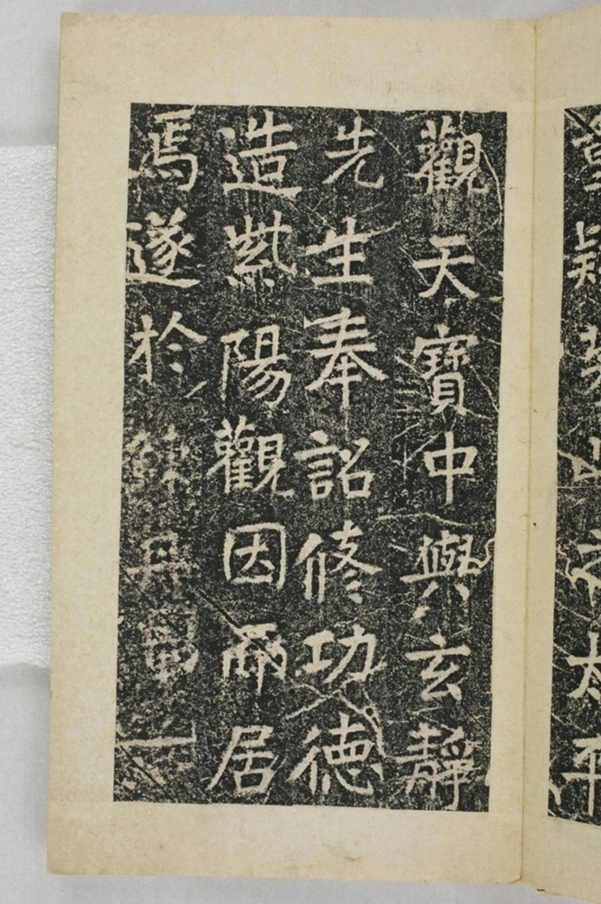 太平
觀天寶中與玄靜
先生奉詔修功德
造紫陽觀因而居
焉遂於